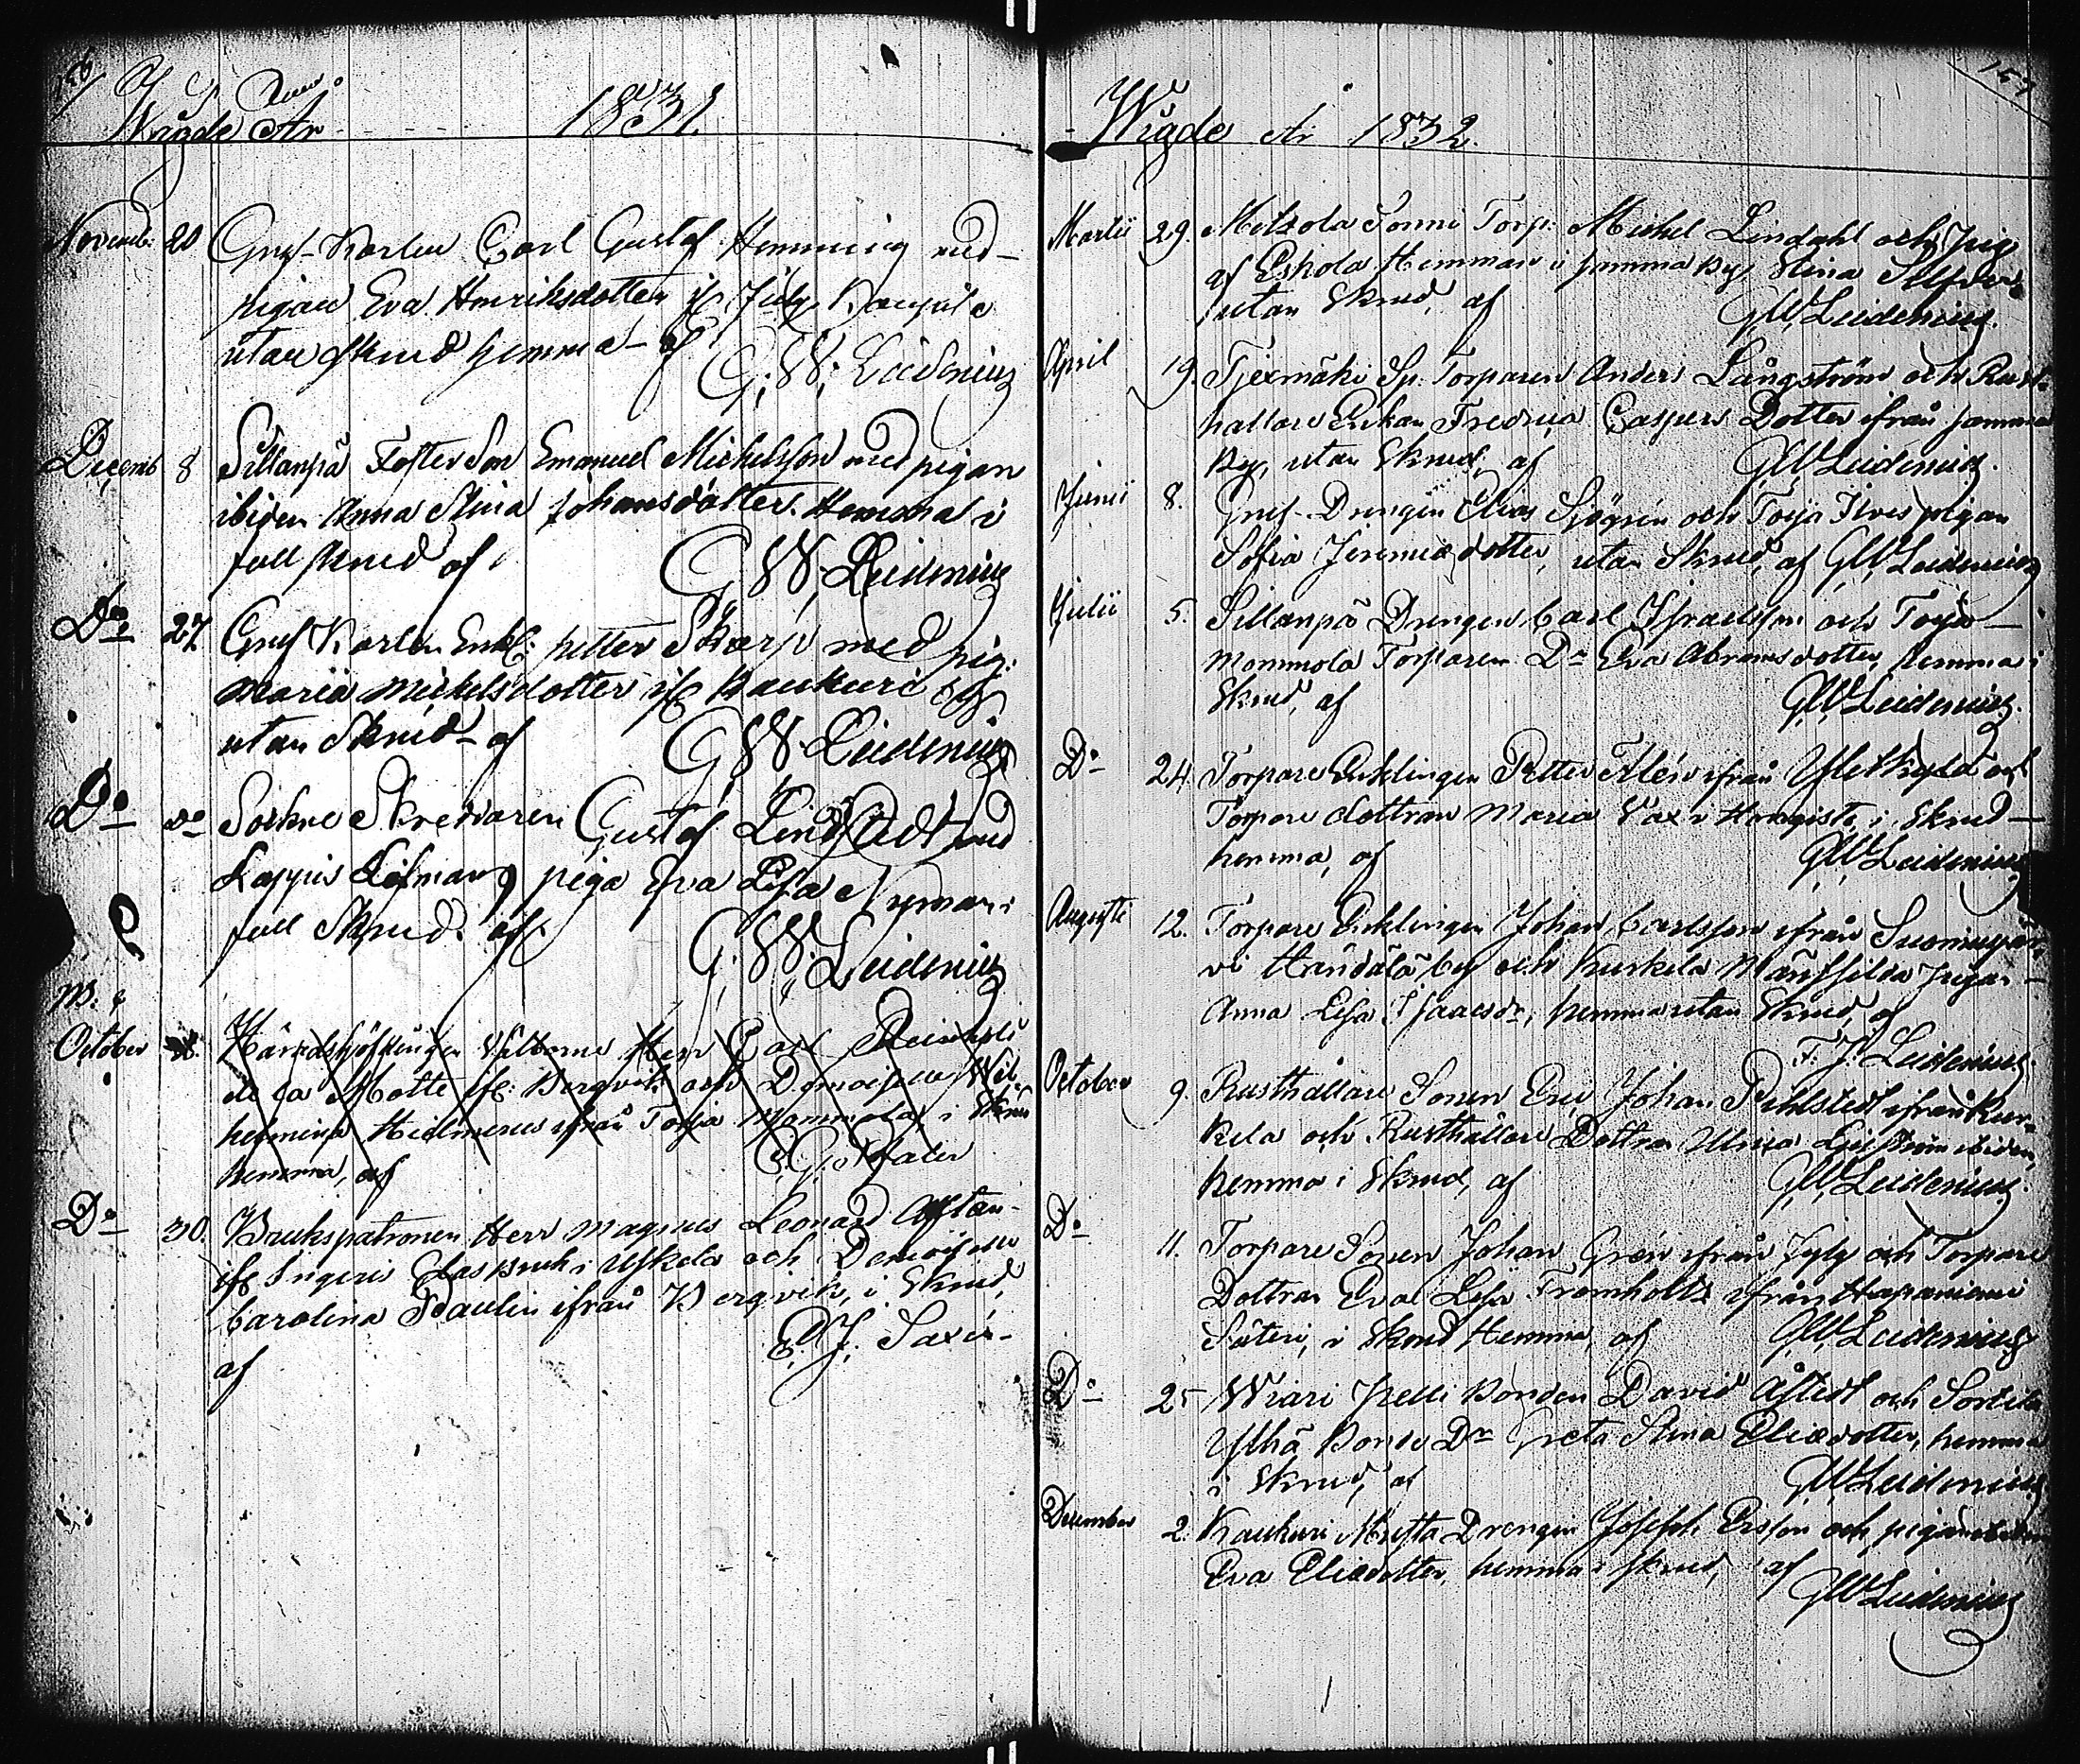 156
Wigde År 1831.
Novemb: 20 Gref-Karlen Carl Gustaf Hemming med
pigan Eva Henriksdotter if
utan skrud hemma af
G: W: Leidenius
Decemb 8 Sillanpä Foster Son Emanuel Michelsson med pigan
ibiden Anna Stina Johansdotter. Hemma i
full skrud af
G W. Leidenius
Do 27 Gref Karlen Enkl: petter Skarp med pig:
Maria Michelsdotter if Kaukuri
utan Skrud af
G W. Leidenius
Do do Sockne Skreddaren Gustaf Lindstedt med
Lappis piga Eva Lisa Nyman i
full Skrud. af
G. W. Leidenius
October Häradshöfdingen Herr Carl Reinhold
de la Motte if: Bergvik och Demoiselle Wil-
helmina Hidenius ifrån Torja Mommola i Skrud
hemma, af
Do 30. Brukspatronen Herr Magnus Leonard
if Ingeris Glasbruk i Uskela och Demoiselle
Carolina Paulin ifrån Bergvik, i Skrud,
af E. J. Saxén
157
Wigde År 1832.
Martii 29. Metsola Sonni Torp: Michel Lindahl och Pig
af Eskola Hemman i samma By, Stina
utan Skrud, af G.W. Leidenius.
April 19. Sp. Torparen Anders Långström och Rust-
hållare Enkan Fredrica Caspers Dotter ifrån samma
By, utan Skrud, af GW Leidenius.
Junii 8. Gref-Drengen Elias Sjögren och Torja Ilves pigan
Sofia Jeremiædotter, utan Skrud, af GW Leidenius
Julii 5. Sillanpä Drengen Carl Israelsson och Torja
Mommola Torparen Dr Eva Abramsdotter, hemma i
Skrud, af G.W. Leidenius.
Do 24. Torpare Enklingen Petter Filén ifrån Yliskylä och
Torpare dottran Maria Wax i Hongisto, i Skrud
hemma, af G.W. Leidenius
Augusti 12. Torpare Enklingen Johan Carlsson ifrån Suomusjär-
vi Händälä by och Kurkela pigan
Anna Lisa Isaacsdr, hemma utan Skrud, af
F. J. Leidenius
October 9. Rusthållare Sonen Eric Johan Pihlstedt ifrån Kur-
kela och Rusthållare Dottran Ulrica ibiden,
hemma i Skrud, af G.W. Leidenius.
Do 11. Torpare Sonen Johan Grén ifrån och Torpare
Dottran Eva Lisa Tromholtz ifrån Hapaniemi
Säteri, i Skrud Hemma, af G.W. Leidenius
Do 25 Wiari Pelli Bonden David Åstedt och
Ylhä Bonde Dr Greta Stina Eliædotter, hemma
i Skrud, af G.W. Leidenius
December 2. Kaukuri Drengen Joseph Ersson och pigan ibidem
Eva Eliædotter, hemma i skrud, af
GW Leidenius